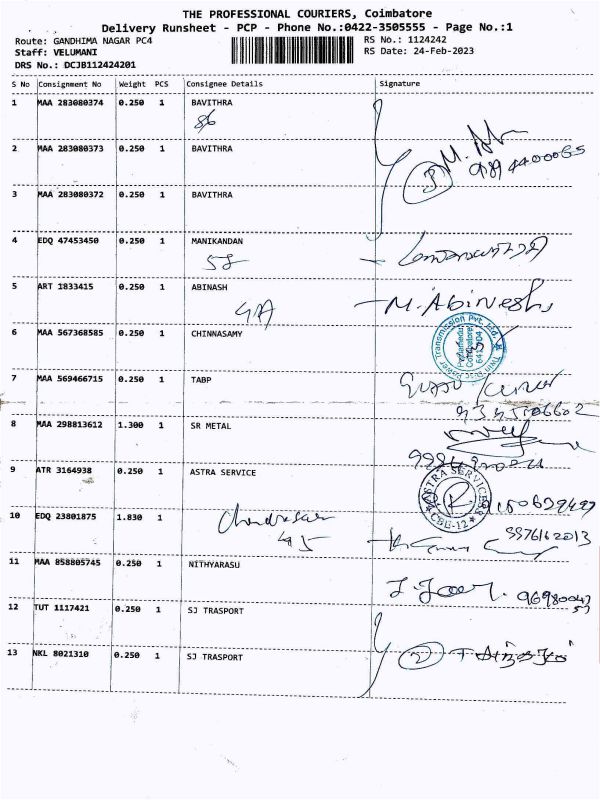 THE PROFESSIONAL COURIERS, Coimbatore
Delivery Runsheet - PCP - Phone No.:0422-3505555 - Page No.:1
Route: GANDHIMA NAGAR PC4 RS No.: 1124242
Staff: VELUMANI RS Date: 24-Feb-2023
DRS No.: DCJB112424201
S No Consignment No Weight PCS Consignee Details Signature
1 MAA 283080374 0.250 1 BAVITHRA
86
2 MAA 283080373 0.250 1 BAVITHRA
3 MAA 283080372 0.250 1 BAVITHRA
3
4 EDQ 47453450 0.250 1 MANIKANDAN
58
5 ART 1833415 0.250 1 ABINASH
4A M. Abinesh
6 MAA 567368585 0.250 1 CHINNASAMY
7 MAA 569466715 0.250 1 TABP
8 MAA 298813612 1.300 1 SR METAL
9 ATR 3164938 0.250 1 ASTRA SERVICE
ASTRA SERVICES
CBE-12
10 EDQ 23801875 1.830 1 Chandrasekar
45 9976162013
11 MAA 858805745 0.250 1 NITHYARASU
12 TUT 1117421 0.250 1 SJ TRASPORT
13 NKL 8021310 0.250 1 SJ TRASPORT
2